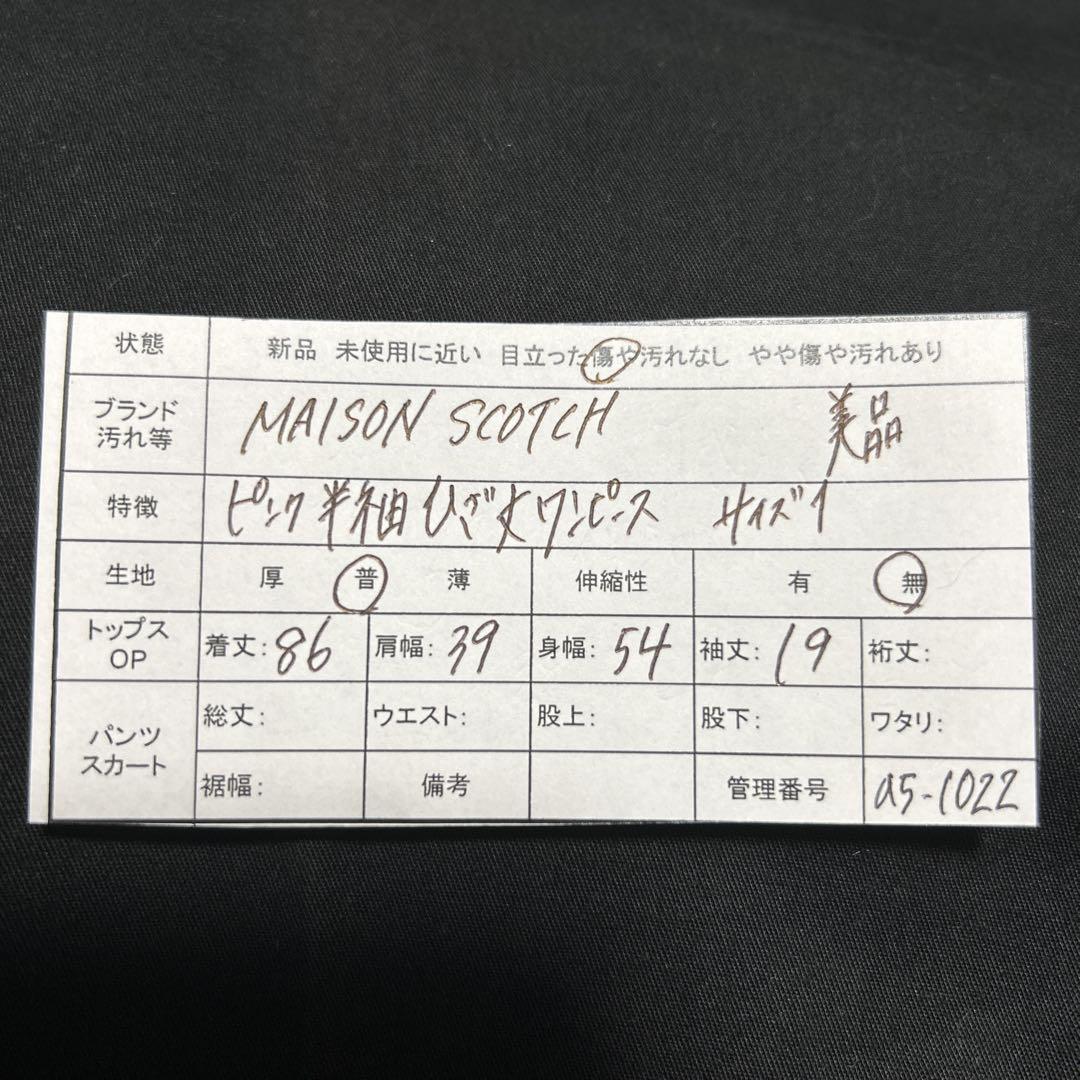 状態 新品 未使用に近い 目立った傷や汚れなし やや傷や汚れあり
ブランド
汚れ等 MAISON SCOTCH 美品
特徴 ピンク半袖ひざ丈ワンピース サイズ1
生地 厚 普 薄 伸縮性 有 無
トップス
OP 着丈:86 肩幅:39 身幅:54 袖丈:19 裄丈:
パンツ
スカート 総丈: ウエスト: 股上: 股下: ワタリ:
裾幅: 備考 管理番号 a5-1022